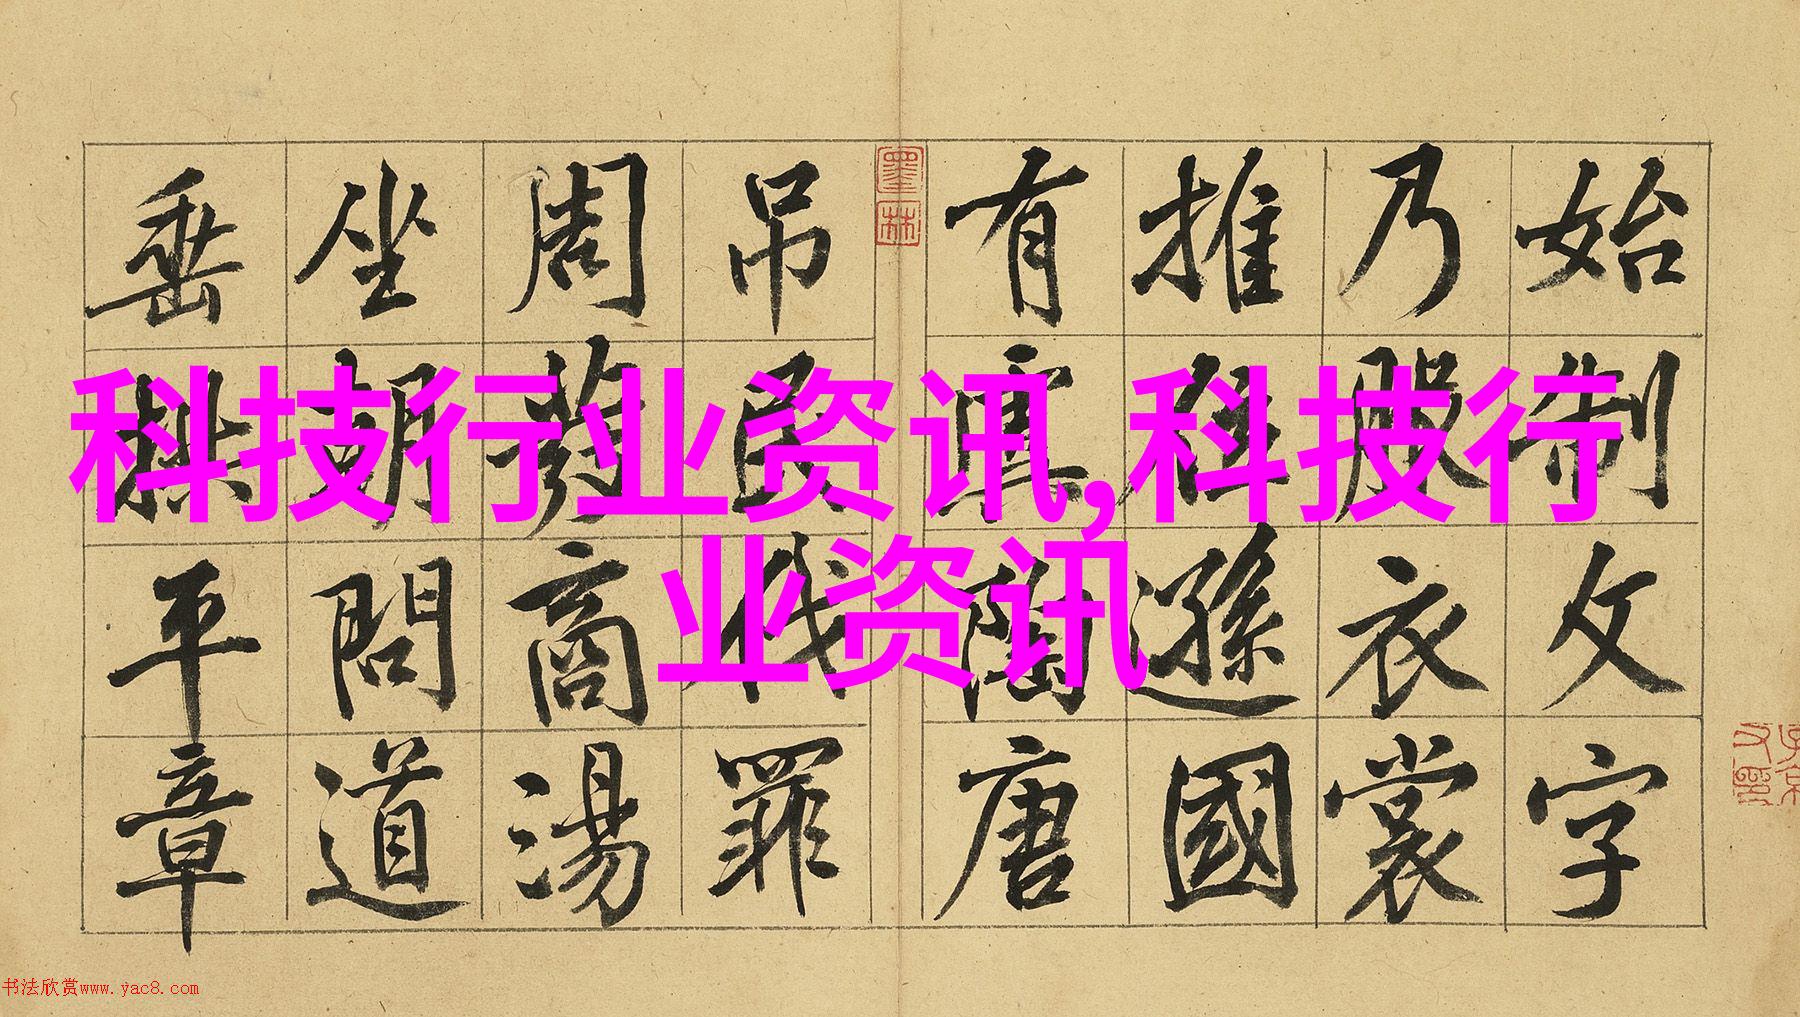 科技行业资讯,科技行
业资讯
始制文字
乃服衣裳
推位遜國
有虞陶唐
墨林
吊民伐罪
周發商湯
坐朝問道
垂拱平章
书法欣赏www.yac8.com